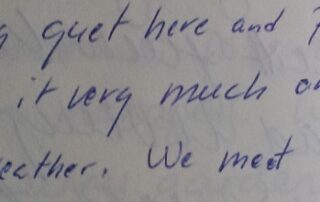 quet here and
it very much
eather. We meet